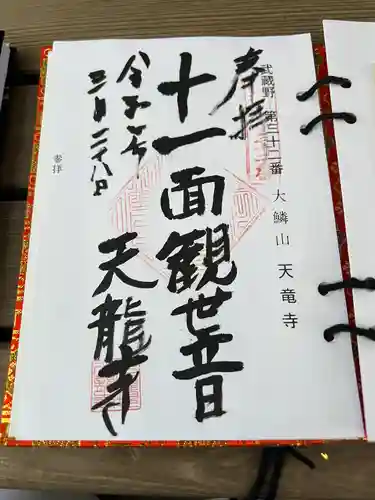 奉拝
武蔵野 第三十二番 大鱗山 天竜寺
十一面観世音
天龍寺
三月二十八日
参拝